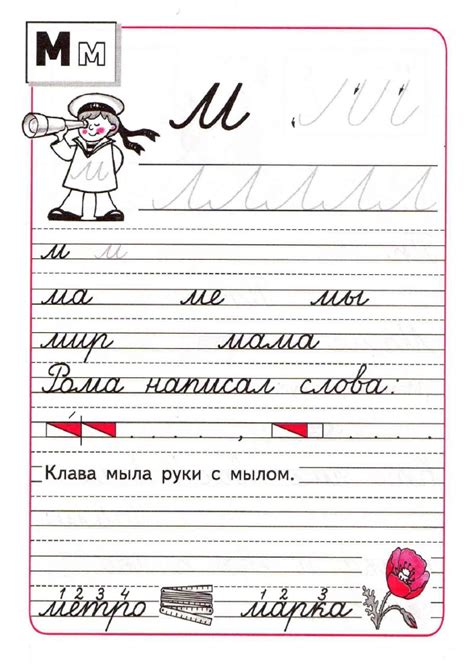 М м
м
м
м м
ма ме мы
мир мама
Рома написал слова:
Клава мыла руки с мылом.
1 2 3 4 1 2 3
метро марка